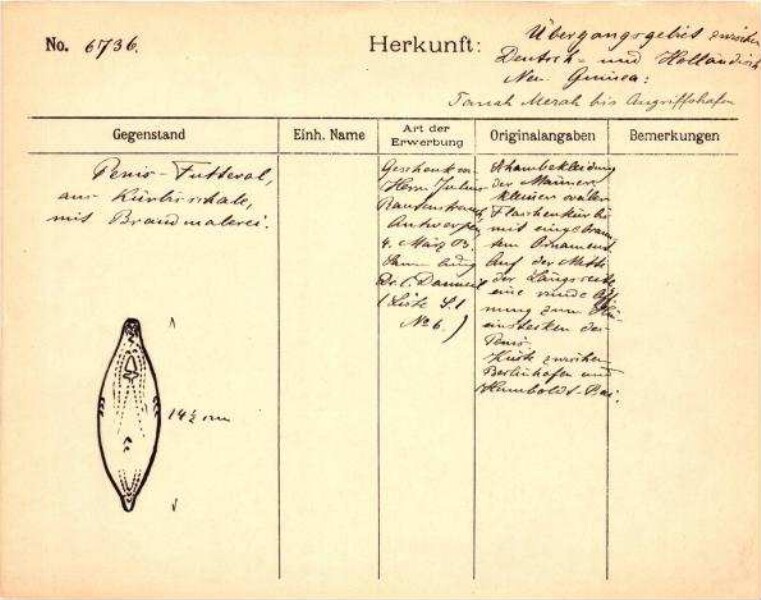 No. 6736.
Herkunft:
Übergangsgebiet zwischen
Deutsch- und Holländisch
Neu Guinea:
Tanah Merah bis Angriffshafen
Gegenstand
Einh. Name
Art der
Erwerbung
Originalangaben
Bemerkungen
Penis-Futteral,
aus Kürbisschale,
mit Brandmalerei.
14½ cm
Geschenk von
Herrn Julius
Rautenstrauch,
Antwerpen
4. März 03.
Sammlung
Dr. Danneil
(Liste S. 1
No 6.)
Schambekleidung
der Männer
kleiner ovaler
Flaschenkürbis
mit eingebrann-
tem Ornament
Auf der Mitte
der Längsseite
eine runde Öff-
nung zum
einstecken des
Penis.
Küste zwischen
Berlinhafen und
Humboldt-Bai.